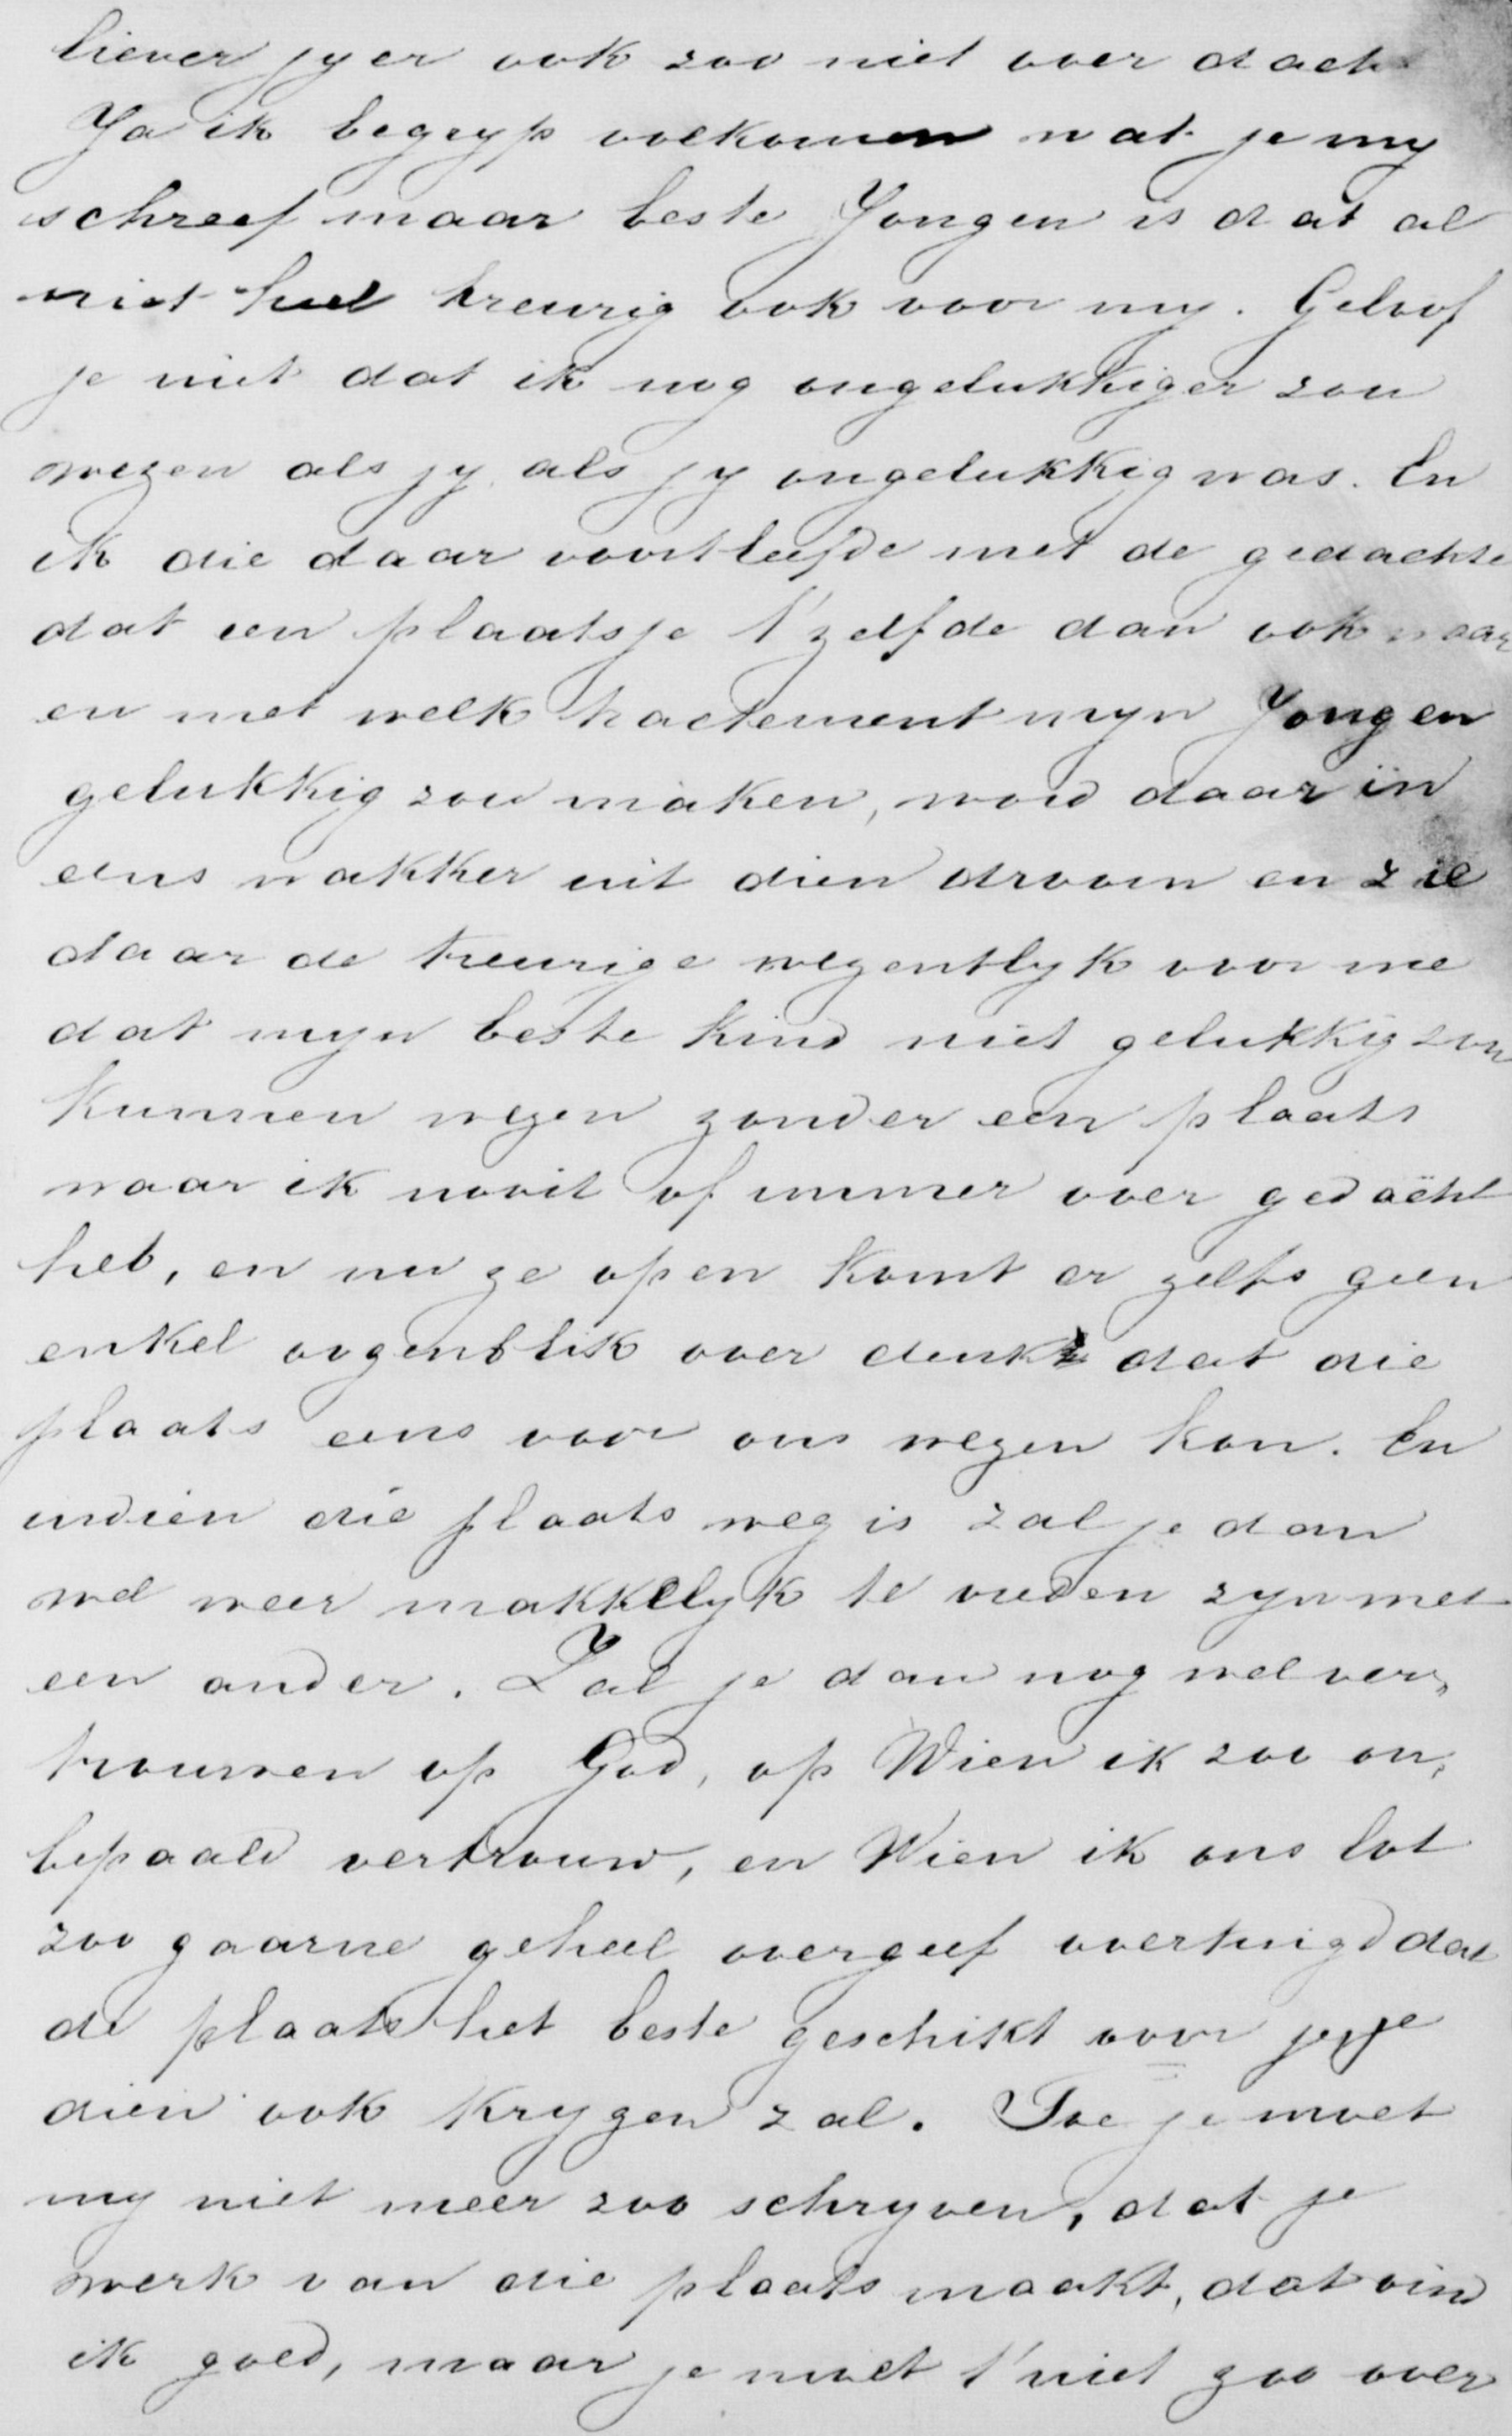 liever jy er ook zoo niet over dacht
Ja ik begryp volkomen wat je my
schreef maar beste Jongen is dat al
niet heel treurig ook voor my. Geloof
je niet dat ik nog ongelukkiger zou
wezen als jy, als jy ongelukkig was. En
ik die daar voortleefde met de gedachte
dat een plaatsje t'zelfde dan ook waar
en met welk tractement myn Jongen
gelukkig zou maken, word daar in
eens wakker uit dien droom en zie
daar de treurige wezentlyk voor me
dat myn beste kind niet gelukkig zou
kunnen wezen zonder een plaats
waar ik nooit of immer over gedacht
heb, en nu ze open komt er zelfs geen
enkel oogenblik over denk dat die
plaats eens voor ons wezen kon. En
indien die plaats weg is zal je dan
wel weer makkelyk te vreden zyn met
een ander. Zal je dan nog wel ver„
trouwen op God, op Wien ik zoo on„
bepaald vertrouw, en Wien ik ons lot
zoo gaarne geheel overgeef overtuigd dat
de plaats het beste geschikt voor je je
dien ook krygen zal. Toe je moet
my niet meer zoo schryven, dat je
werk van die plaats maakt, dat vind
ik goed, maar je moet t'niet zoo over